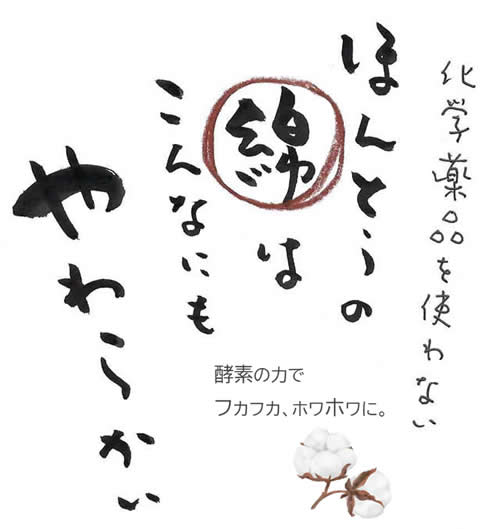 化学薬品を使わない
ほんとうの
綿は
こんなにも
やわらかい
酵素の力で
フカフカ、ホワホワに。